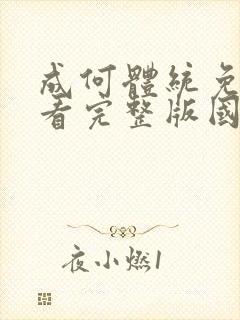 成何體統免
看完整版國
夜小燃1